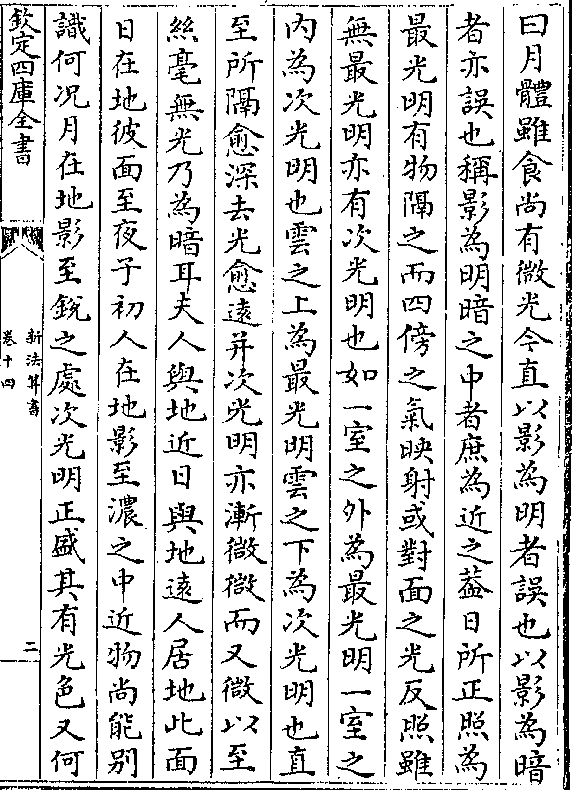 曰月體雖食尚有微光今直以影為明者誤也以影為暗
者亦誤也稱影為明暗之中者庶為近之葢日所正照為
最光明有物隔之而四傍之氣映射或對面之光反照雖
無最光明亦有次光明也如一室之外為最光明一室之
内為次光明也雲之上為最光明雲之下為次光明也直
至所隔愈深去光愈逺并次光明亦漸微微而又微以至
絲毫無光乃為暗耳夫人與地近日與地逺人居地此面
日在地彼面至夜子初人在地影至濃之中近物尚能别
識何况月在地影至銳之處次光明正盛其有光色又何
欽定四庫全書
新法算書
卷十四
二